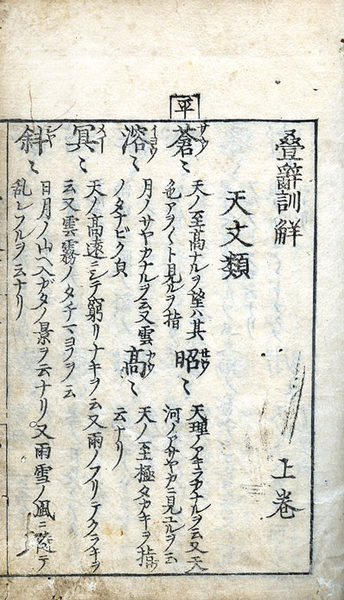 平
疊辭訓解 上巻
天文類
蒼〻 サウ
天ノ至高ナルヲ望ハ其
色アヲ〱ト見ルヲ指
昭〻
天理ノアキラカナルヲ云又天
河ノアサヤカニ見ユルヲ云
溶〻 ヨウ
月ノサヤカナルヲ云又雲
ノタナビク皃
高〻 カウ
天ノ至極タカキヲ指
云ナリ
冥〻
天ノ高遠ニシテ窮リナキヲ云又雨ノフリテクラキヲ
云又雲霧ノタチマヨフヲ云
斜〻
日月ノ山ヘ入ガタノ景ヲ云ナリ又雨雪ノ風ニ隨テ
乱レフルヲ云ナリ